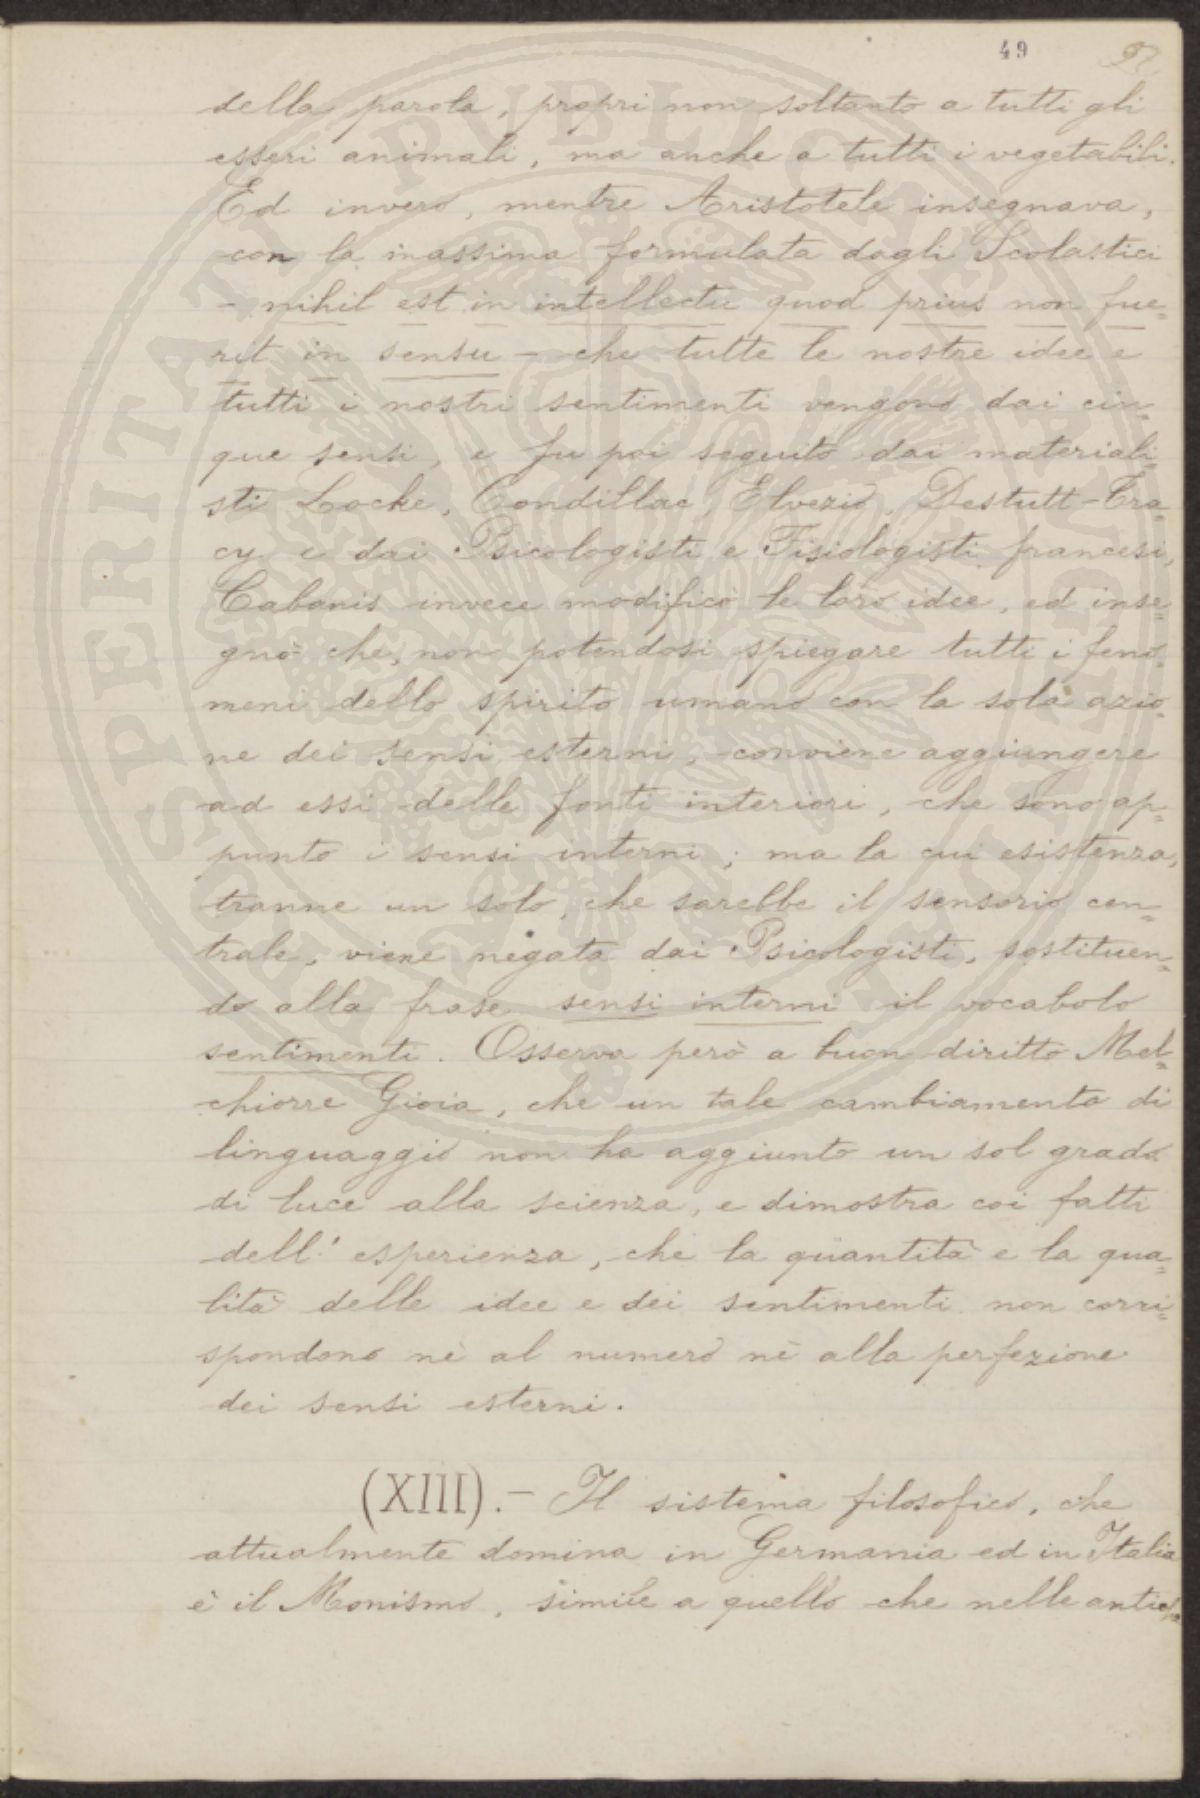 49
della parola, propri non soltanto a tutti gli
esseri animali, ma anche a tutti i vegetabili.
Ed invero, mentre Aristotele insegnava,
con la massima formulata dagli Scolastici
- nihil est in intellectu quod prius non fue=
rit in sensu - che tutte le nostre idee e
tutti i nostri sentimenti vengono dai cin=
que sensi, e fu poi seguito dai materiali=
sti Locke, Condillac, Elvezio, Destutt-Tra=
cy e dai Psicologisti e Fisiologisti francesi,
Cabanis invece modificò le loro idee, ed inse=
gnò che, non potendosi spiegare tutti i feno=
meni dello spirito umano con la sola azio=
ne dei sensi esterni, conviene aggiungere
ad essi delle fonti interiori, che sono ap=
punto i sensi interni; ma la cui esistenza,
tranne un solo, che sarebbe il sensorio cen=
trale, viene negata dai Psicologisti, sostituen=
do alla frase sensi interni il vocabolo
sentimenti. Osserva però a buon diritto Mel=
chiorre Gioia, che un tale cambiamento di
linguaggio non ha aggiunto un sol grado
di luce alla scienza, e dimostra coi fatti
dell'esperienza, che la quantità e la qua=
lità delle idee e dei sentimenti non corri=
spondono nè al numero nè alla perfezione
dei sensi esterni.
(XIII).- Il sistema filosofico, che
attualmente domina in Germania ed in Italia
è il Monismo, simile a quello che nelle antich=
PROSPERITATI PUBLICAE AUGENDAE